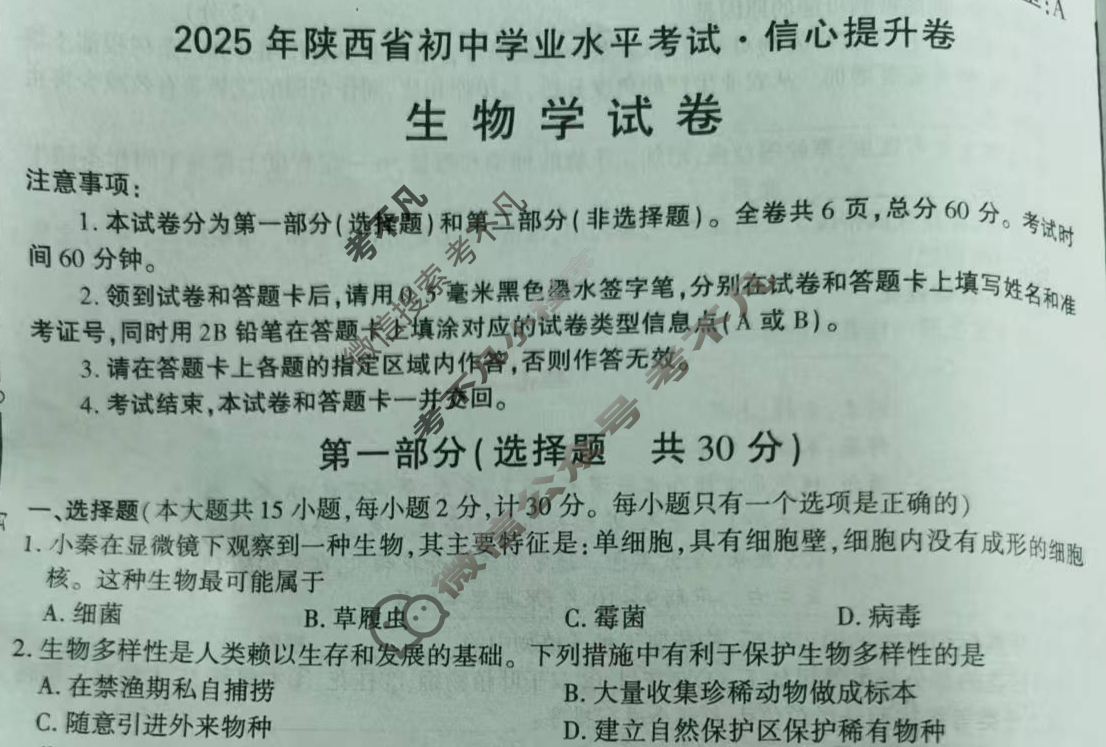 :A
2025年陕西省初中学业水平考试·信心提升卷
生物学试卷
注意事项：
1. 本试卷分为第一部分(选择题)和第二部分(非选择题)。全卷共6页,总分60分。考试时
间60分钟。
2. 领到试卷和答题卡后,请用0.5毫米黑色墨水签字笔,分别在试卷和答题卡上填写姓名和准
考证号,同时用2B铅笔在答题卡上填涂对应的试卷类型信息点(A或B)。
3. 请在答题卡上各题的指定区域内作答,否则作答无效。
4. 考试结束,本试卷和答题卡一并交回。
第一部分(选择题 共30分)
一、选择题(本大题共15小题,每小题2分,计30分。每小题只有一个选项是正确的)
1. 小秦在显微镜下观察到一种生物,其主要特征是:单细胞,具有细胞壁,细胞内没有成形的细胞
核。这种生物最可能属于
A. 细菌 B. 草履虫 C. 霉菌 D. 病毒
2. 生物多样性是人类赖以生存和发展的基础。下列措施中有利于保护生物多样性的是
A. 在禁渔期私自捕捞 B. 大量收集珍稀动物做成标本
C. 随意引进外来物种 D. 建立自然保护区保护稀有物种
考不凡
微信搜索考不凡
考不凡小程序
微信公众号 考不凡